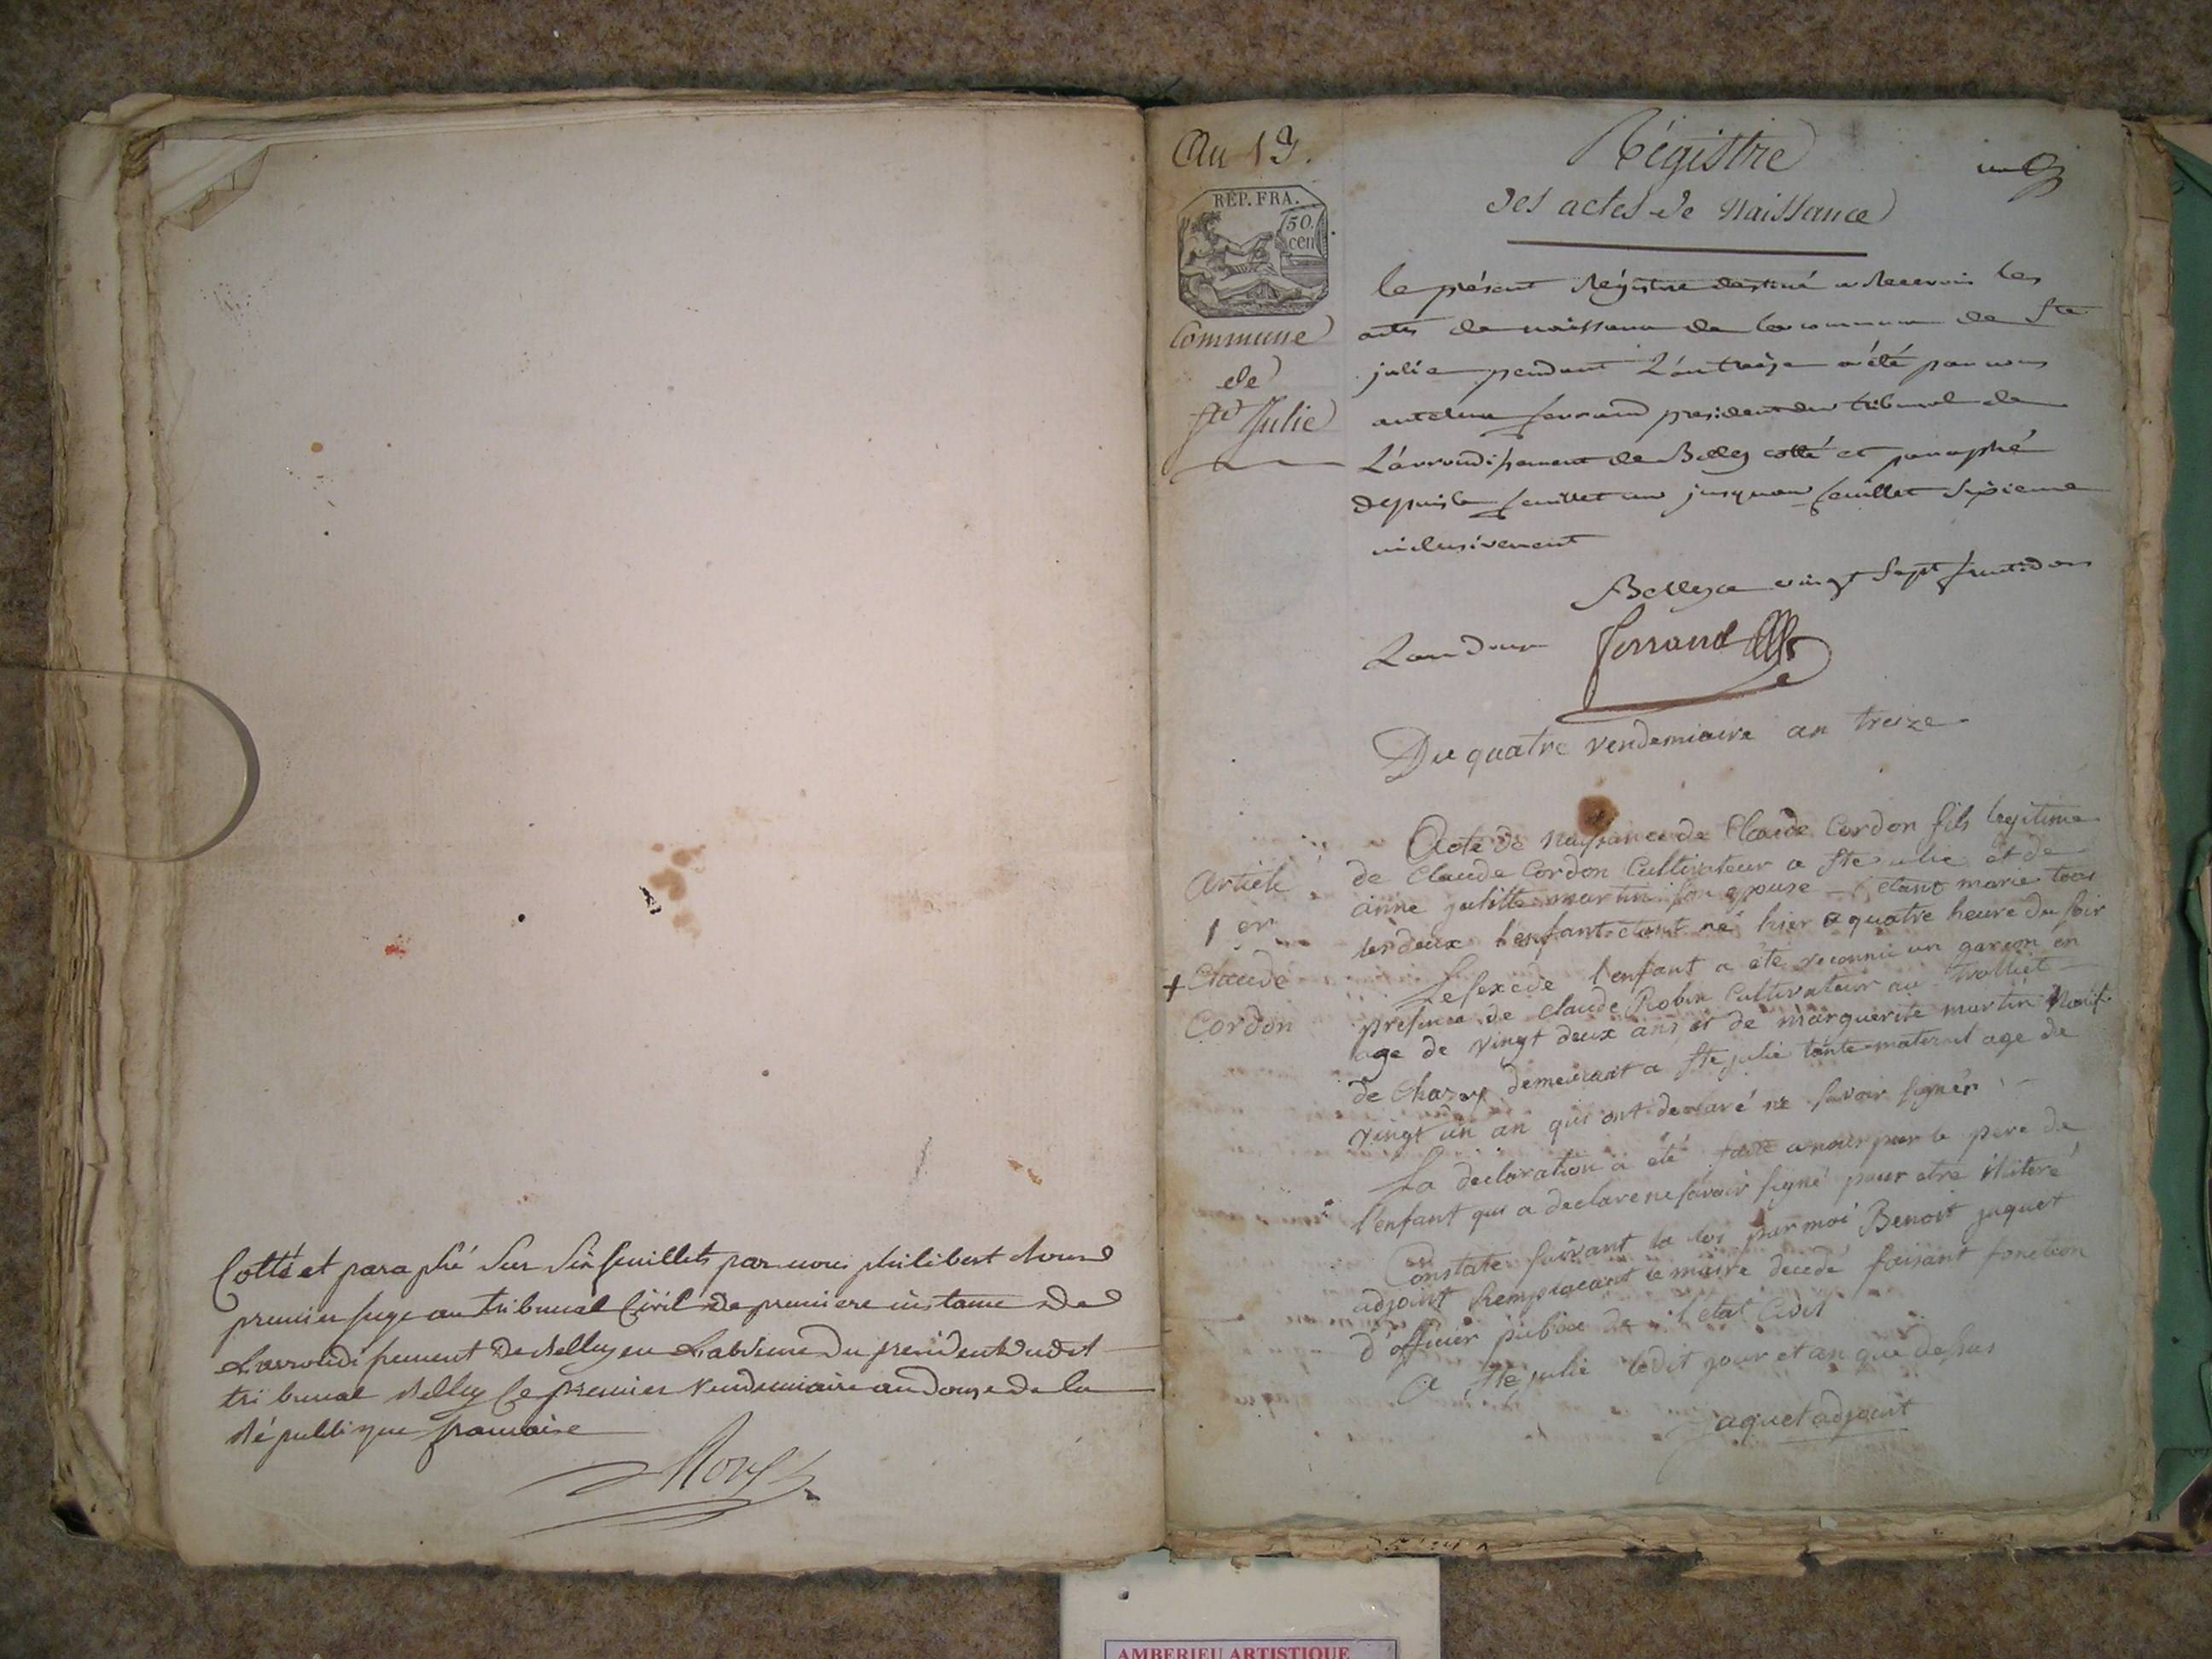 Cotté et paraphé sur six feuillets par nous philibert
premier juge au tribunal Civil de premiere instance de
L'arrondissement de Belley en L'absence du president dudit
tribunal Belley le premier vendemiaire an douze de la
République francaise
An 13.
Régistre
des actes de Naissance
REP. FRA.
50.
cen
Commune
de
Ste Julie
le présent Régistre destiné a Recevoir les
actes de naissance de la commune de Ste
julie pendant L'an treize a été par nous
anthelme ferrand president du tribunal de
L'arrondissement de Belley cotté et paraphé
depuis le feuillet un jusqu'au feuillet sixieme
inclusivement
Belley ce vingt sept fructidor
L'an douze ferrand
Du quatre vendemiaire an treize
Article
1 er
+ Claude
Cordon
Acte de naissance de Claude Cordon fils legitime
de Claude Cordon Cultivateur a Ste julie et de
anne julitte martin son epouse etant marie tous
les deux l'enfant etant né hier a quatre heure du soir
Le sexe de l'enfant a été reconnu un garcon en
présence de Claude Robin Cultivateur au Trolliet
age de vingt deux ans et de marguerite martin Natif
de Chazey demeurant a Ste julie tante maternel age de
vingt un an qui ont declaré ne savoir signer
La declaration a été faite a nous par le pere de
l'enfant qui a declare ne savoir signé pour etre illiteré
Constate suivant la loi par moi Benoit jaquet
adjoint Remplacant le maire decedé faisant fonction
d'officier publie de l'état Civil
A Ste julie ledit jour et an que dessus
Jaquet adjoint
AMBERIEU ARTISTIQUE